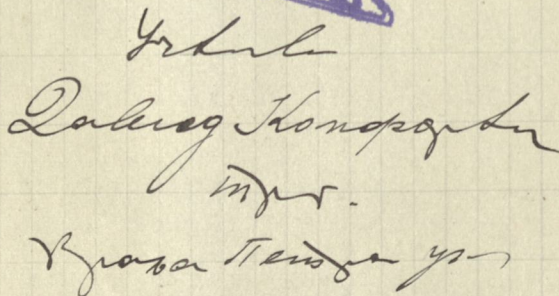 Давид Конфорти
трг.
Краља Петра ул.